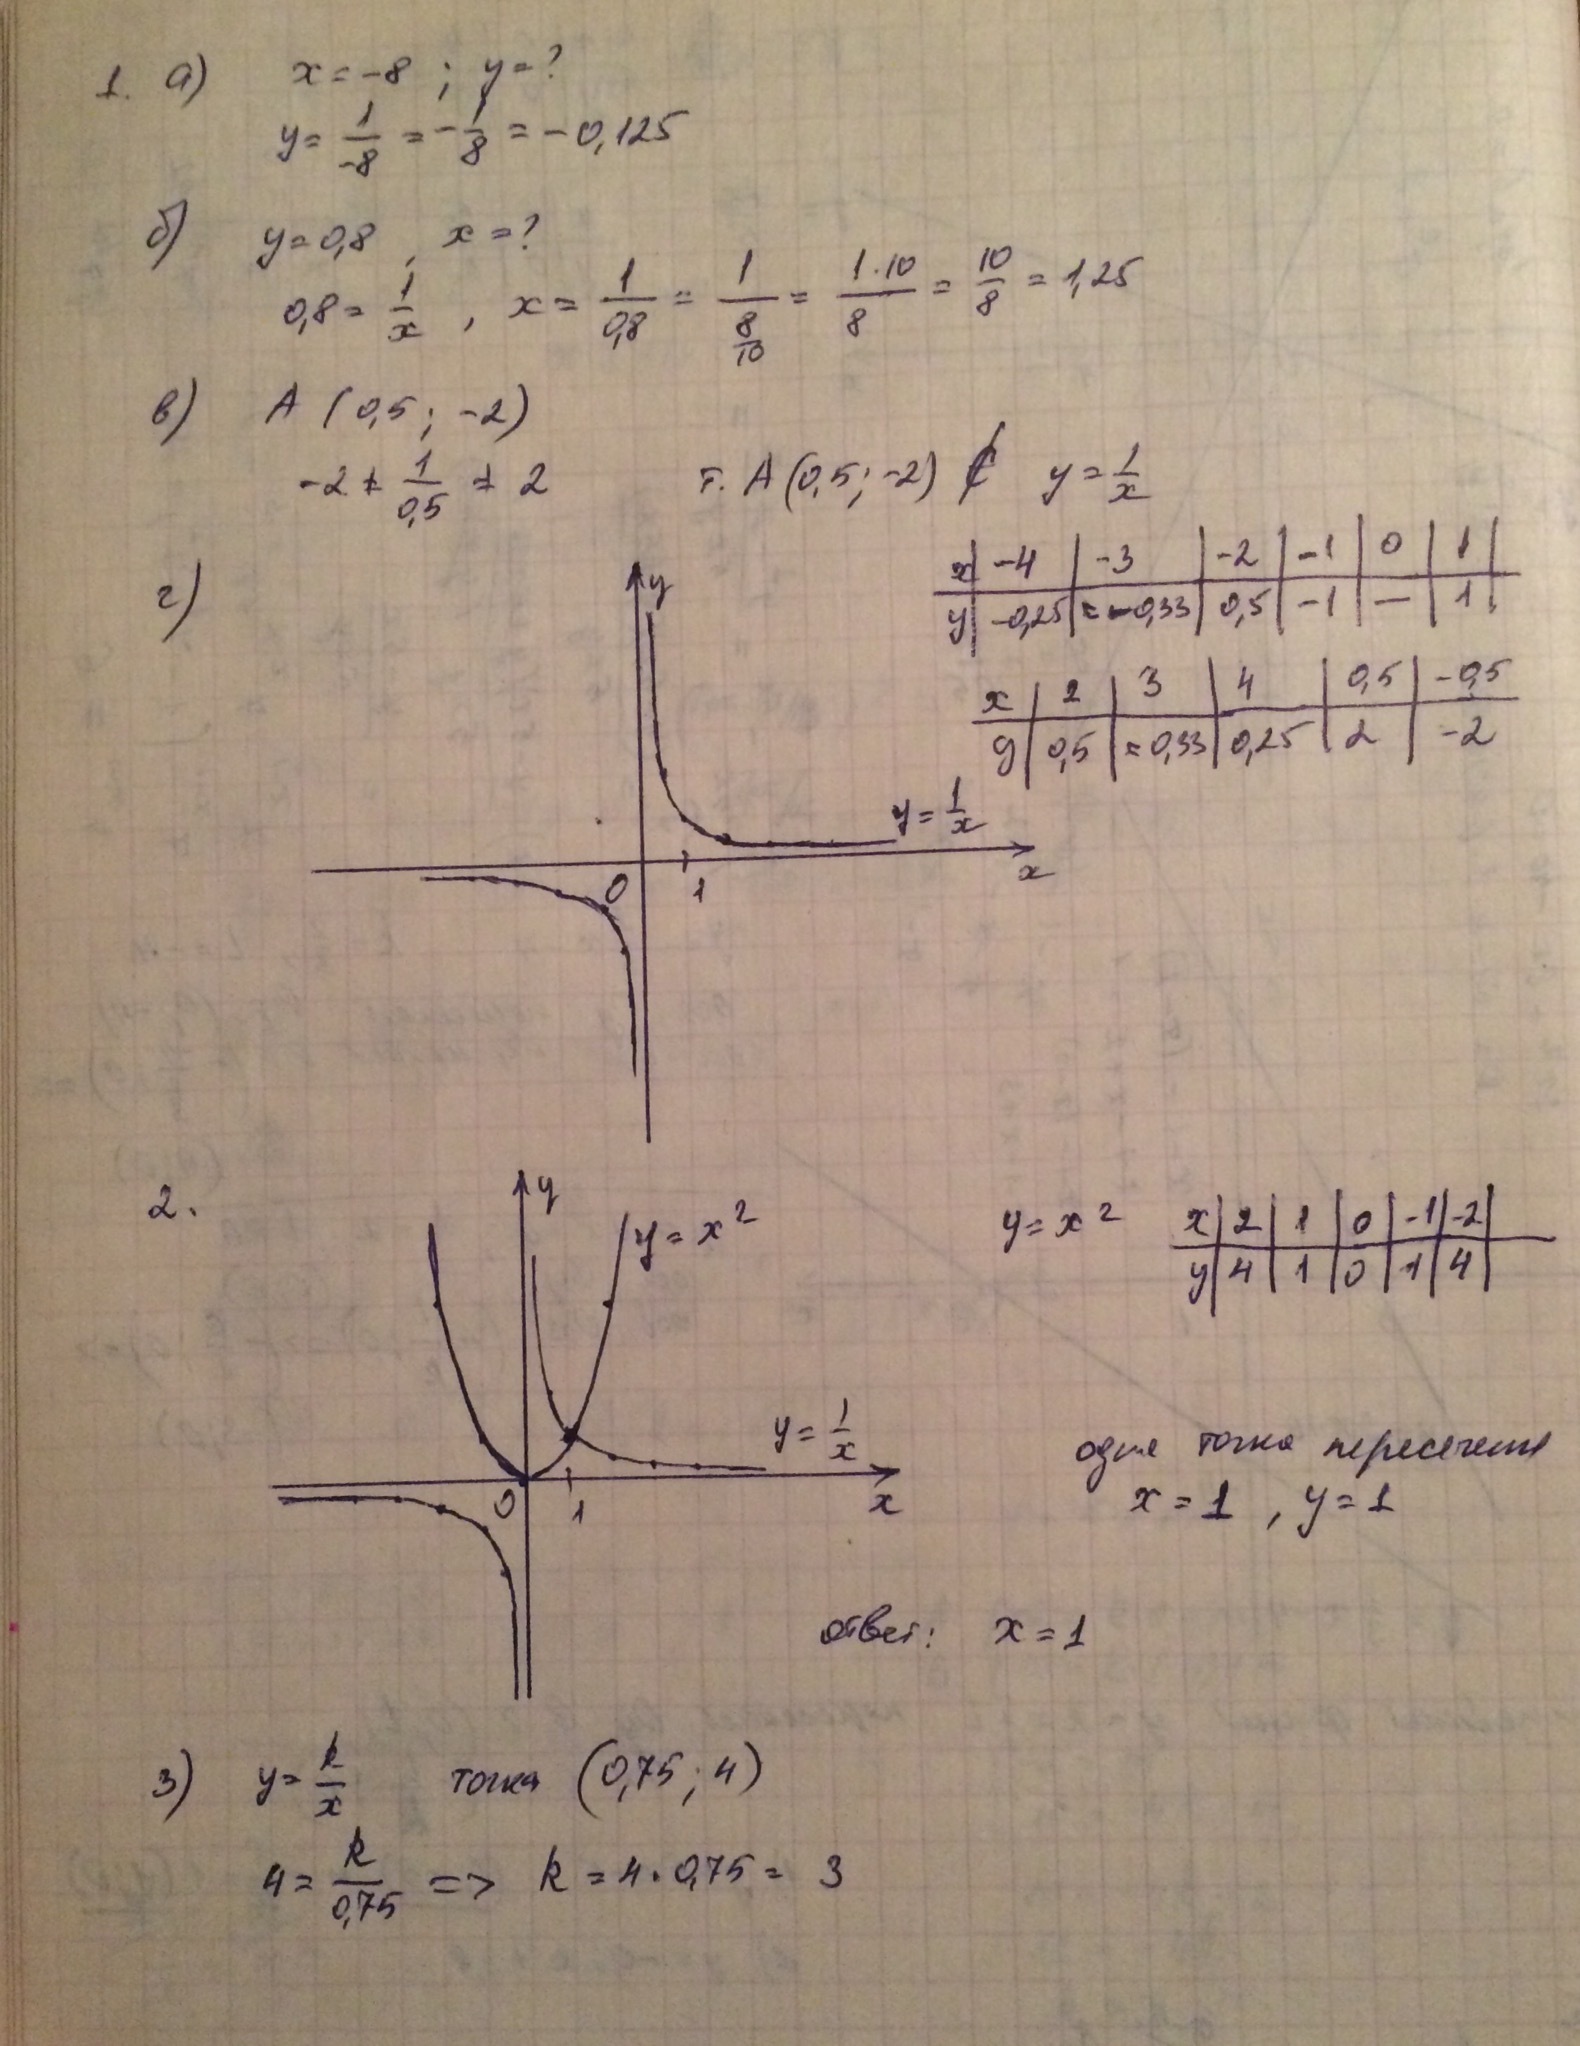 1. а) x = -8 ; y = ?
y = 1/-8 = -1/8 = -0,125
б) y = 0,8 , x = ?
0,8 = 1/x , x = 1/0,8 = 1/(8/10) = 1·10/8 = 10/8 = 1,25
в) A (0,5 ; -2)
-2 ≠ 1/0,5 = 2 т. A (0,5 ; -2) ∉ y = 1/x
г)
y
x | -4 | -3 | -2 | -1 | 0 | 1
y | -0,25 | ≈ -0,33 | 0,5 | -1 | — | 1
x | 2 | 3 | 4 | 0,5 | -0,5
y | 0,5 | ≈ 0,33 | 0,25 | 2 | -2
y = 1/x
0 1 x
2.
y
y = x²
y = x² x | 2 | 1 | 0 | -1 | -2
y | 4 | 1 | 0 | 1 | 4
y = 1/x
0 1 x
одна точка пересечения
x = 1 , y = 1
ответ: x = 1
3) y = k/x точка (0,75 ; 4)
4 = k/0,75 => k = 4 · 0,75 = 3